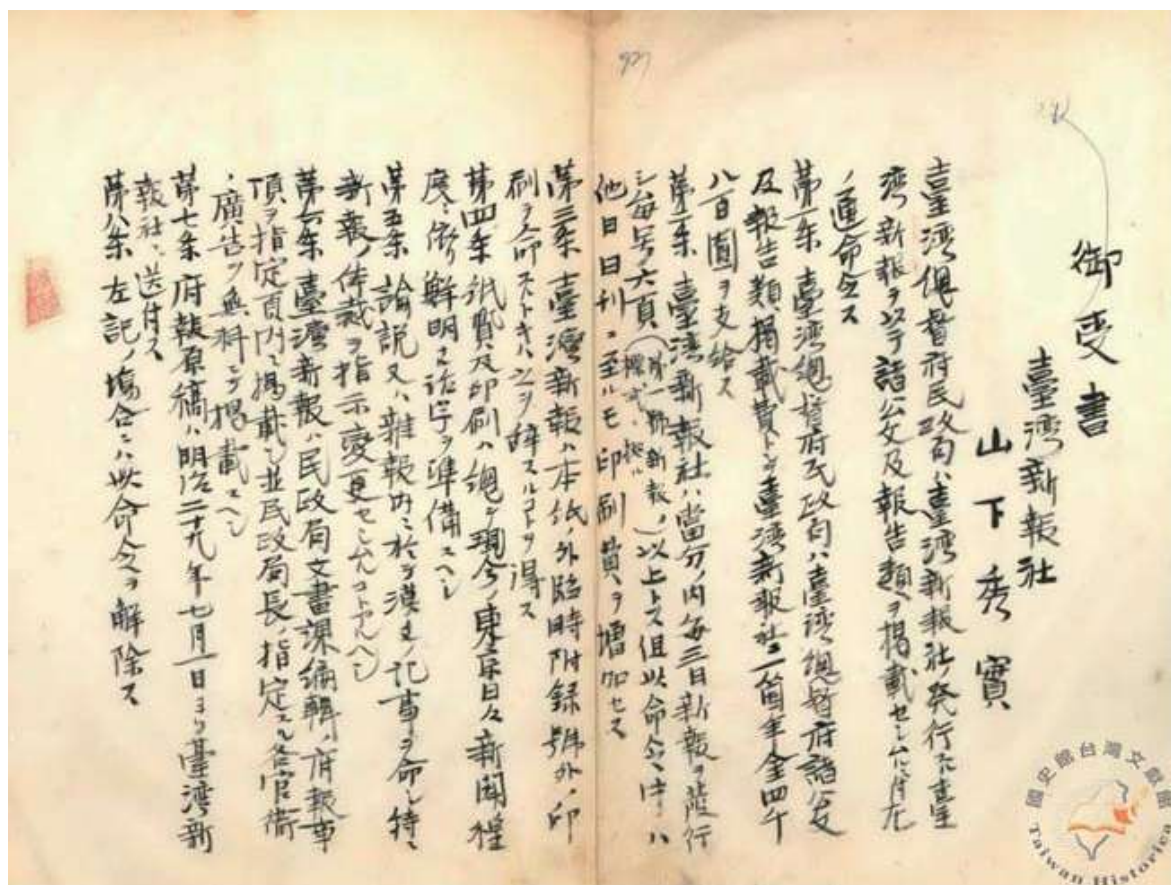 御受書
臺湾新報社
山下秀實
臺湾総督府民政局ハ臺湾新報社発行ニ臺
湾新報ヲ以テ諸公文及報告類ヲ掲載セシムル付左
ノ通命令ス
第一条 臺湾総督府民政局ハ臺湾総督府諸公文
及報告類掲載費トシテ臺湾新報社ニ一箇年金四千
八百圓ヲ支給ス
第二条 臺湾新報社ハ當分ノ内毎三日新報ヲ発行
シ毎号六頁(第一号新報ノ様式ニ拠ル)以上トス但此命令中ハ
他日日刊ニ至ルモ印刷費ヲ増加セス
第三条 臺灣新報ハ本紙ノ外臨時附録號外ノ印
刷ヲ命スルトキハ之ヲ辞スルコトヲ得ス
第四条 紙質及印刷ハ総テ現今ノ東京日々新聞程
度ニ依リ鮮明ナル活字ヲ準備スヘシ
第五条 論説又ハ雑報内ニ於テ漢文ノ記事ヲ命シ特ニ
新報ノ体裁ヲ指示変更セシムルコトアルヘシ
第六条 臺湾新報ハ民政局文書課編輯ノ府報事
項ヲ指定頁内ニ掲載シ並民政局長ノ指定スル各官衙
ノ廣告ヲ無料ニテ掲載スヘシ
第七条 府報原稿ハ明治二十九年七月一日ヨリ臺湾新
報社ニ送付ス
第八条 左記ノ場合ニハ此命令ヲ解除ス
國史館台灣文獻館
Taiwan Historica